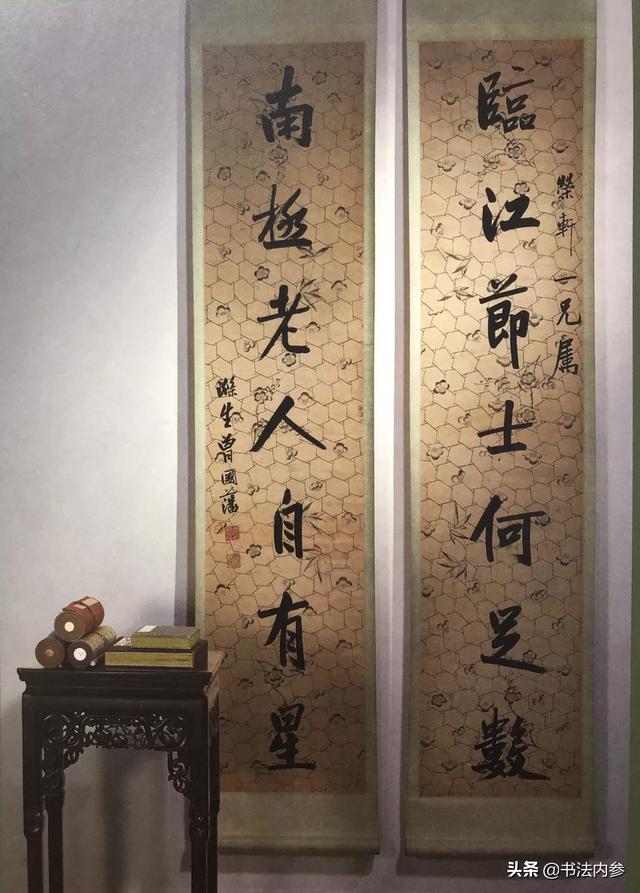 榮軒一兄属
臨江節士何足數
南極老人自有星
滌生曾國藩
头条@书法内参